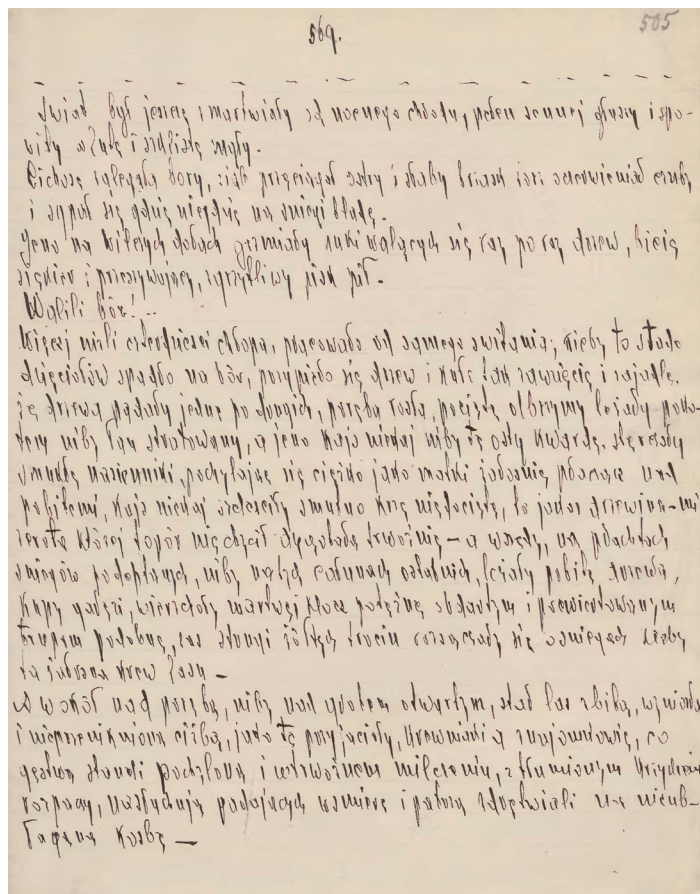 569.
505
Świat był jeszcze zmartwiały od nocnego chłodu, pełen sennej głuszy i spo-
wity w i mgły.
Cichość zalegała bory, ostry i słaby brzask zorzy czuby
i sypał się gdzie niegdzie na śniegi blade.
Jeno na Wilczych dołach grzmiały huki walących się raz po raz drzew, bicie
siekier i przeszywający, zgrzytliwy pisk pił.
Walili bór!..
Więcej niźli czterdzieści chłopa, pracowało od samego świtania; kieby to stado
dzięciołów spadło na bór, przypięło się drzew i kuło tak zawzięcie i zajadle.
Że drzewa padały jedne po drugich, poręba rosła, pocięte olbrzymy leżały poko-
tem niby łan stratowany, a jeno kajś niekaj niby te osty kwarde, sterczały
smukłe nasienniki, pochylając się ciężko jako matki żałośnie płaczące nad
pobitemi, kajś niekaj szeleściły smutno krze niedocięte, to jakaś drzewina-mi
zerota której topór nie chciał dygotała trwożnie – a wszędy, na płachtach
śniegów podeptanych, niby na tych całunach ostatnich, leżały pobite drzewa,
kupy gałęzi, wierzchoły martwe i kloce potężne obdartym i poćwiertowanym
trupom podobne, zaś strugi żółtych trocin rozsączały się w śniegach kieby
ta żałosna krew lasu –
A wokół nad porębą, niby nad grobem otwartym, stał las zbitą, wyniosłą
i nieprzeniknioną ciżbą, jako te przyjacioły, krewniaki a znajomkowie, co
gęstwą stanęli pochyloną i w trwożnem milczeniu, z tłumionym krzykiem
rozpaczy, nasłuchują padających w śmierć i patrzą zdrętwiali na nieub-
łaganą kośbę –